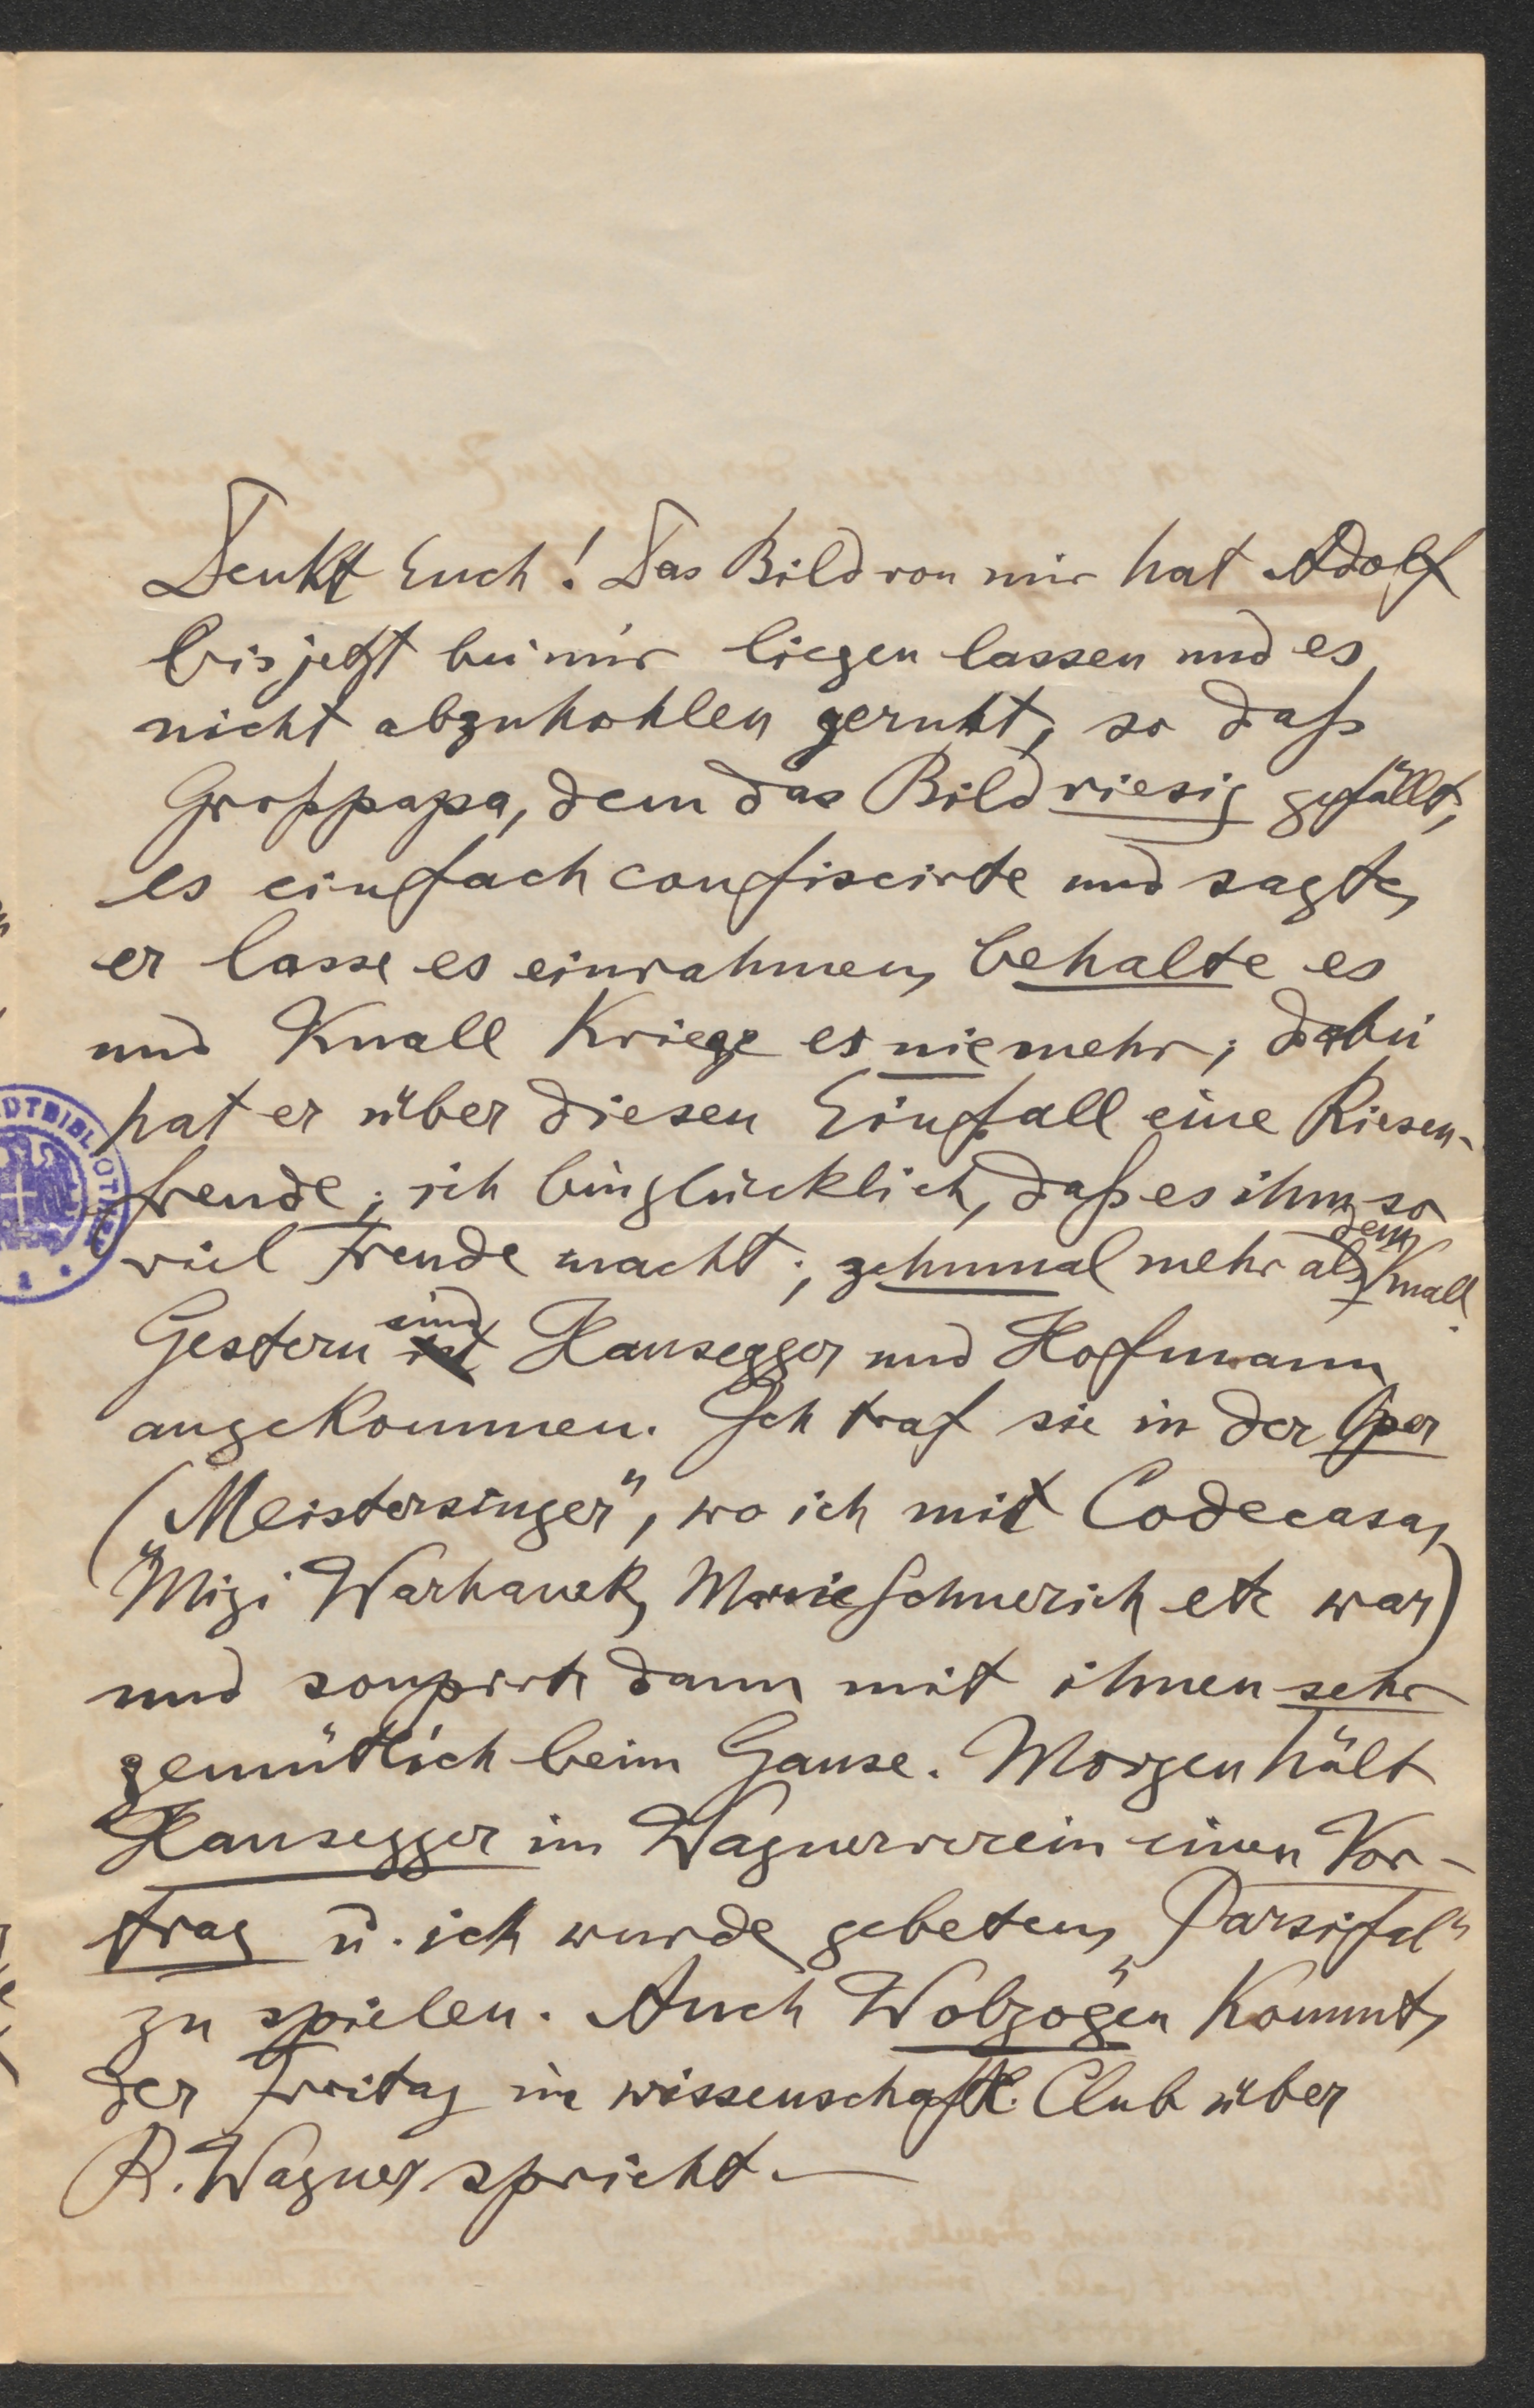 Denkt Euch! Das Bild von mir hat Adolf
bis jetzt bei mir liegen lassen und es
nicht abzuhohlen geruht, so daß
Großpapa, dem das Bild riesig gefällt,
es einfach confiscirte und sagte,
er lasse es einrahmen, behalte es
und Knall kriege es nie mehr; dabei
hat er über diesen Einfall eine Riesen-
freude; ich bin glücklich, daß es ihm so
viel Freude macht; zehnmal mehr als dem Knall.
Gestern sind Hausegger und Hofmann
angekommen. Ich traf sie in der Oper
("Meistersinger", wo ich mit Codecasa,
Mizi Warhanek, Marie Schnerich etc war)
und soupirte dann mit ihnen sehr
gemütlich beim Gause. Morgen hält
Hausegger im Wagnerverein einen Vor-
trag u. ich wurde gebeten, "Parsifal"
zu spielen. Auch Wolzogen kommt,
der Freitag im wissenschaftl. Club über
R. Wagner spricht. —